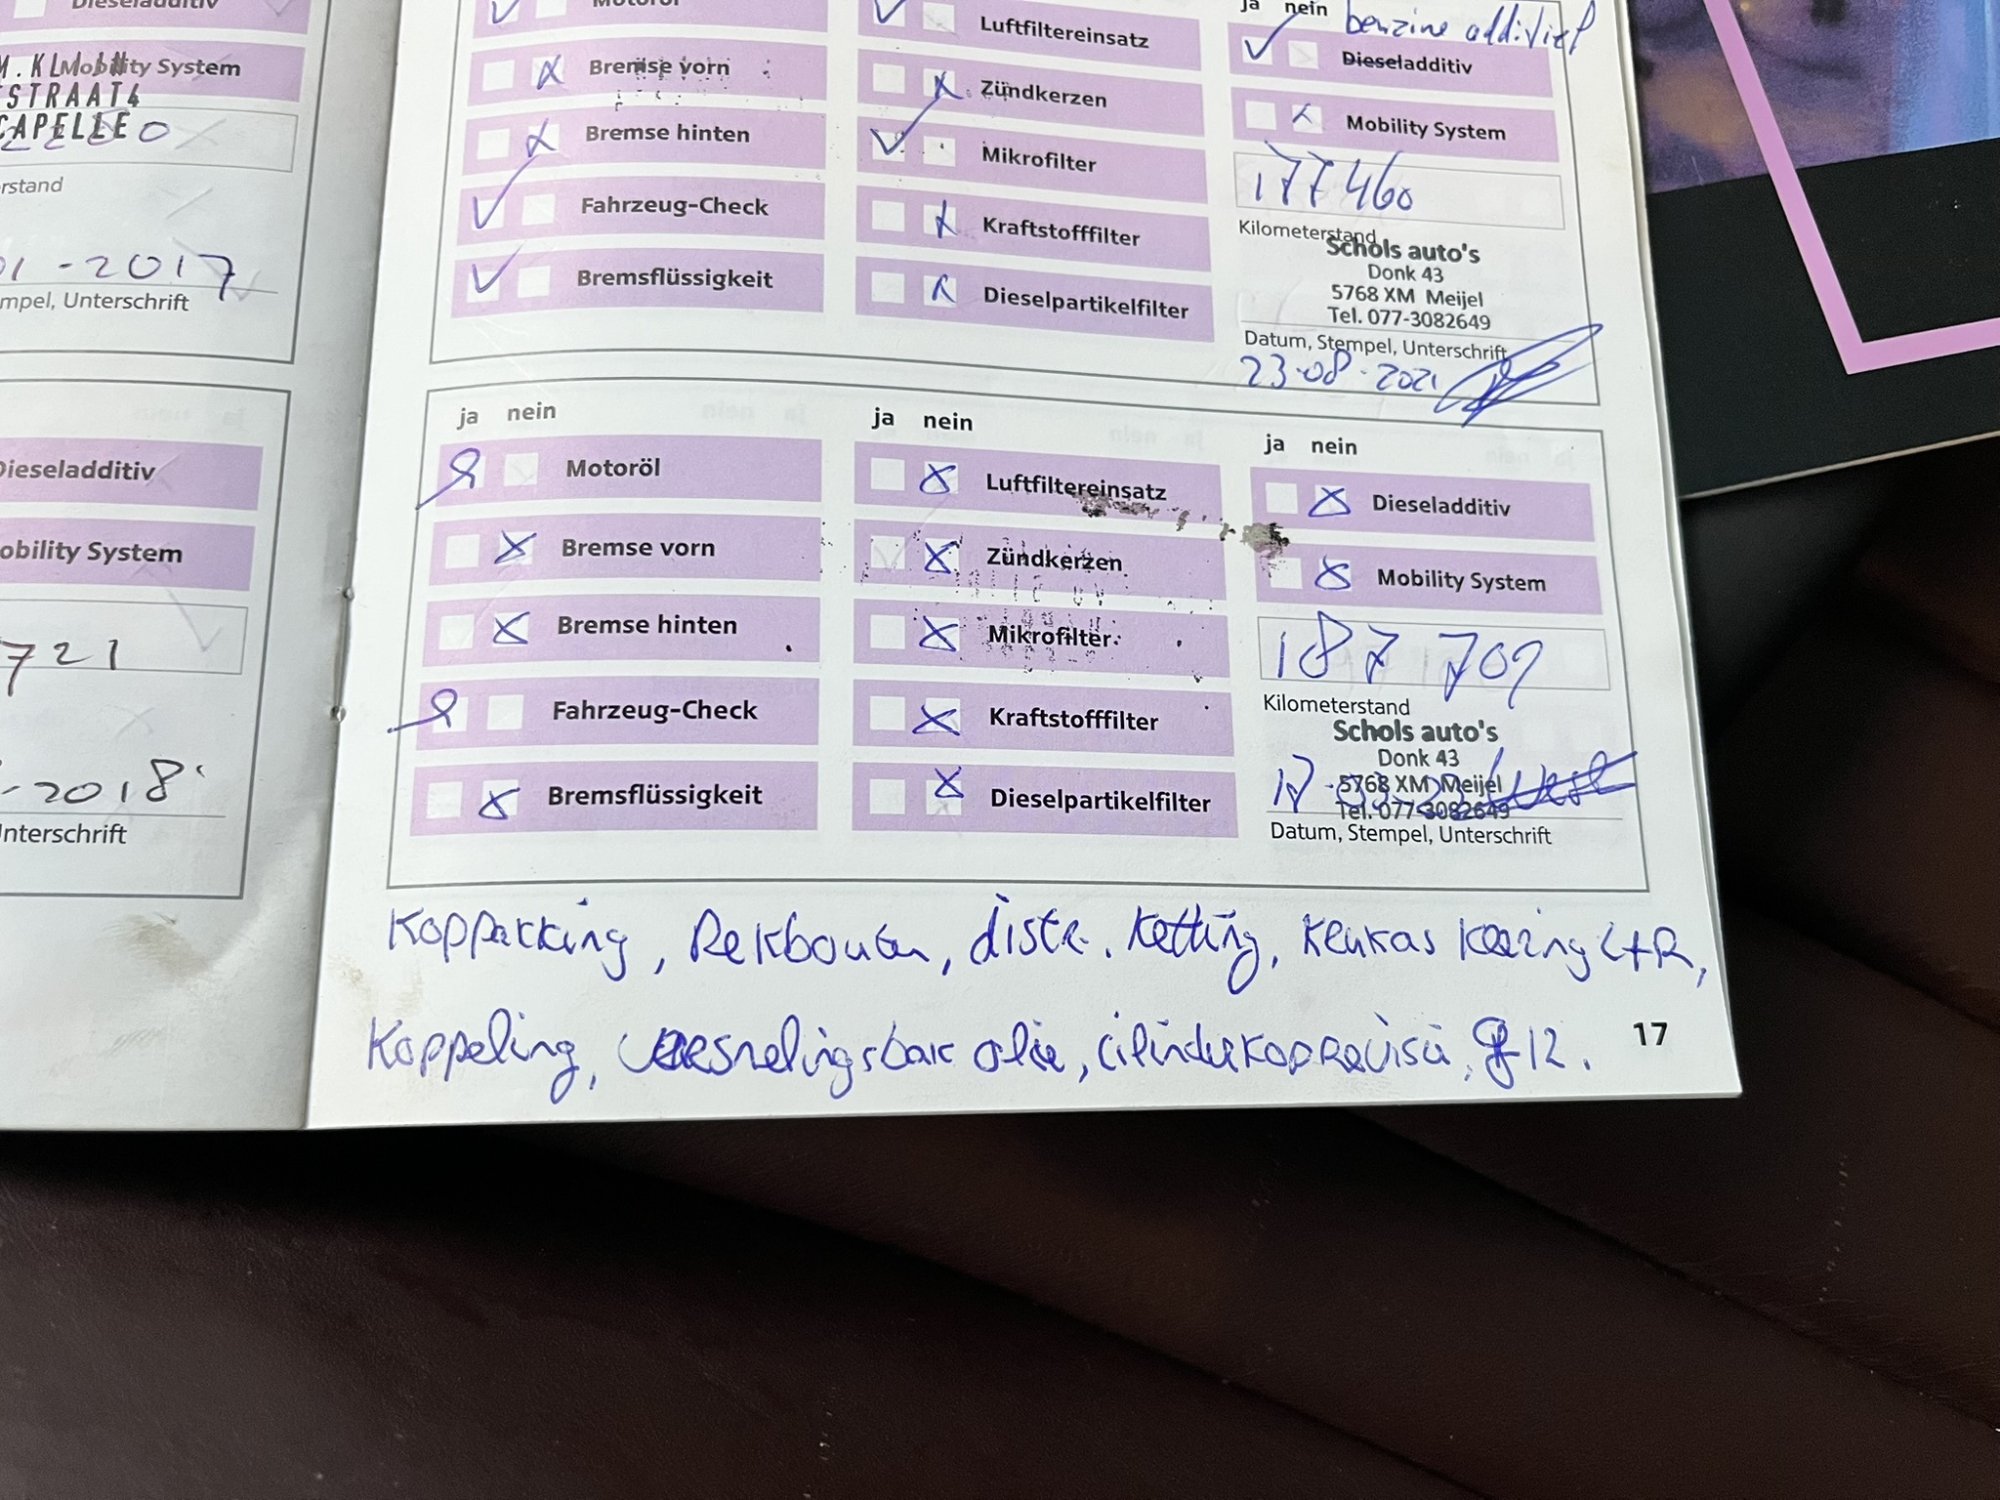 Dieseladditiv
M.KLMobility System
STRAAT4
CAPELLE
rstand
01-2017
mpel, Unterschrift
Dieseladditiv
obility System
721
-2018
nterschrift
Motoröl
Bremse vorn
Bremse hinten
Fahrzeug-Check
Bremsflüssigkeit
Luftfiltereinsatz
Zündkerzen
Mikrofilter
Kraftstofffilter
Dieselpartikelfilter
ja nein
benzine additief
Dieseladditiv
Mobility System
177460
Kilometerstand
Schols auto's
Donk 43
5768 XM Meijel
Tel. 077-3082649
Datum, Stempel, Unterschrift
23-08-2021
ja nein
Motoröl
Bremse vorn
Bremse hinten
Fahrzeug-Check
Bremsflüssigkeit
ja nein
Luftfiltereinsatz
Zündkerzen
Mikrofilter
Kraftstofffilter
Dieselpartikelfilter
ja nein
Dieseladditiv
Mobility System
187 709
Kilometerstand
Schols auto's
Donk 43
5768 XM Meijel
Tel. 077-3082649
Datum, Stempel, Unterschrift
Koppakking, Rekbouten, distr. Ketting, Krukas L+R,
Koppeling, olie, cilinderkoprevisie, 12.
17